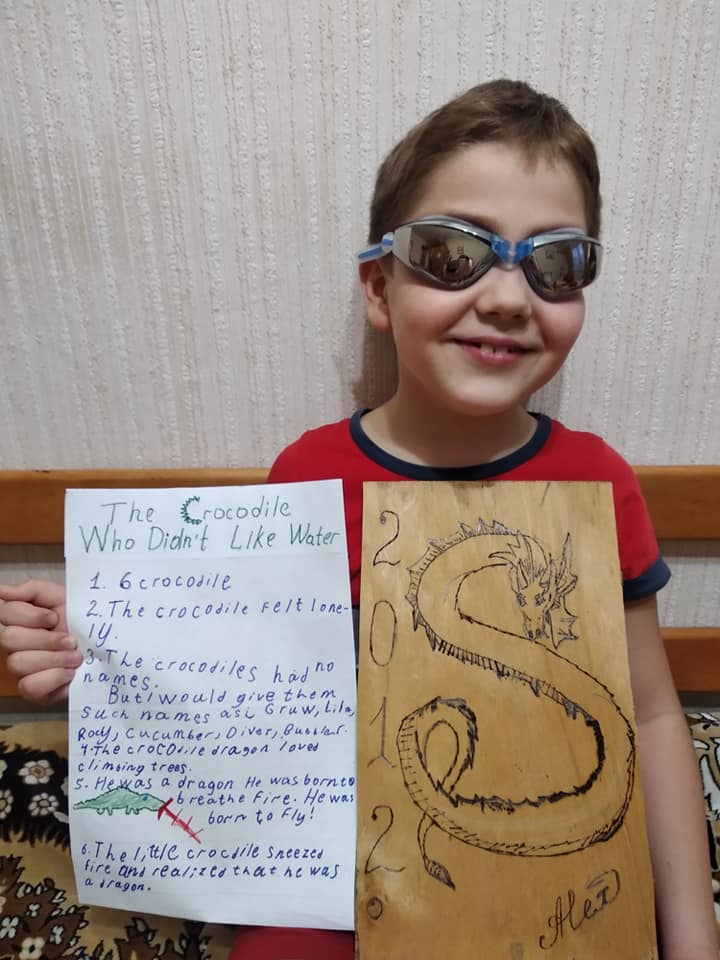 The Crocodile
Who Didn't Like Water
1. 6 crocodile
2. The crocodile felt lone-
ly.
3. The crocodiles had no
names.
But I would give them
such names as: Gruw, Lila,
Rody, Cucumber, Diver, Bubbler.
4. The crocodile dragon loved
climbing trees.
5. He was a dragon He was born to
breathe fire. He was
born to fly!
6. The little crocdile sneezed
fire and realized that he was
a dragon.
2
0
1
2
Alex